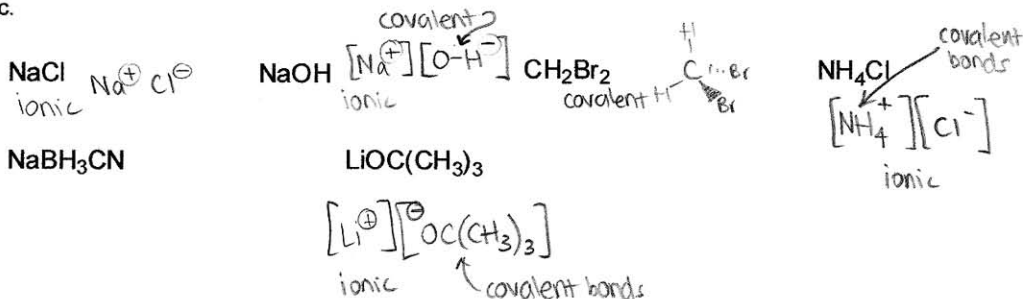 c.
covalent
NaCl Na⊕ Cl⊖
ionic
NaOH [Na⊕][O-H⁻]
ionic
CH2Br2
covalent
H
C
H
Br
Br
NH4Cl
covalent
bonds
[NH4⁺][Cl⁻]
ionic
NaBH3CN
LiOC(CH3)3
[Li⊕][⊖OC(CH3)3]
ionic
covalent bonds